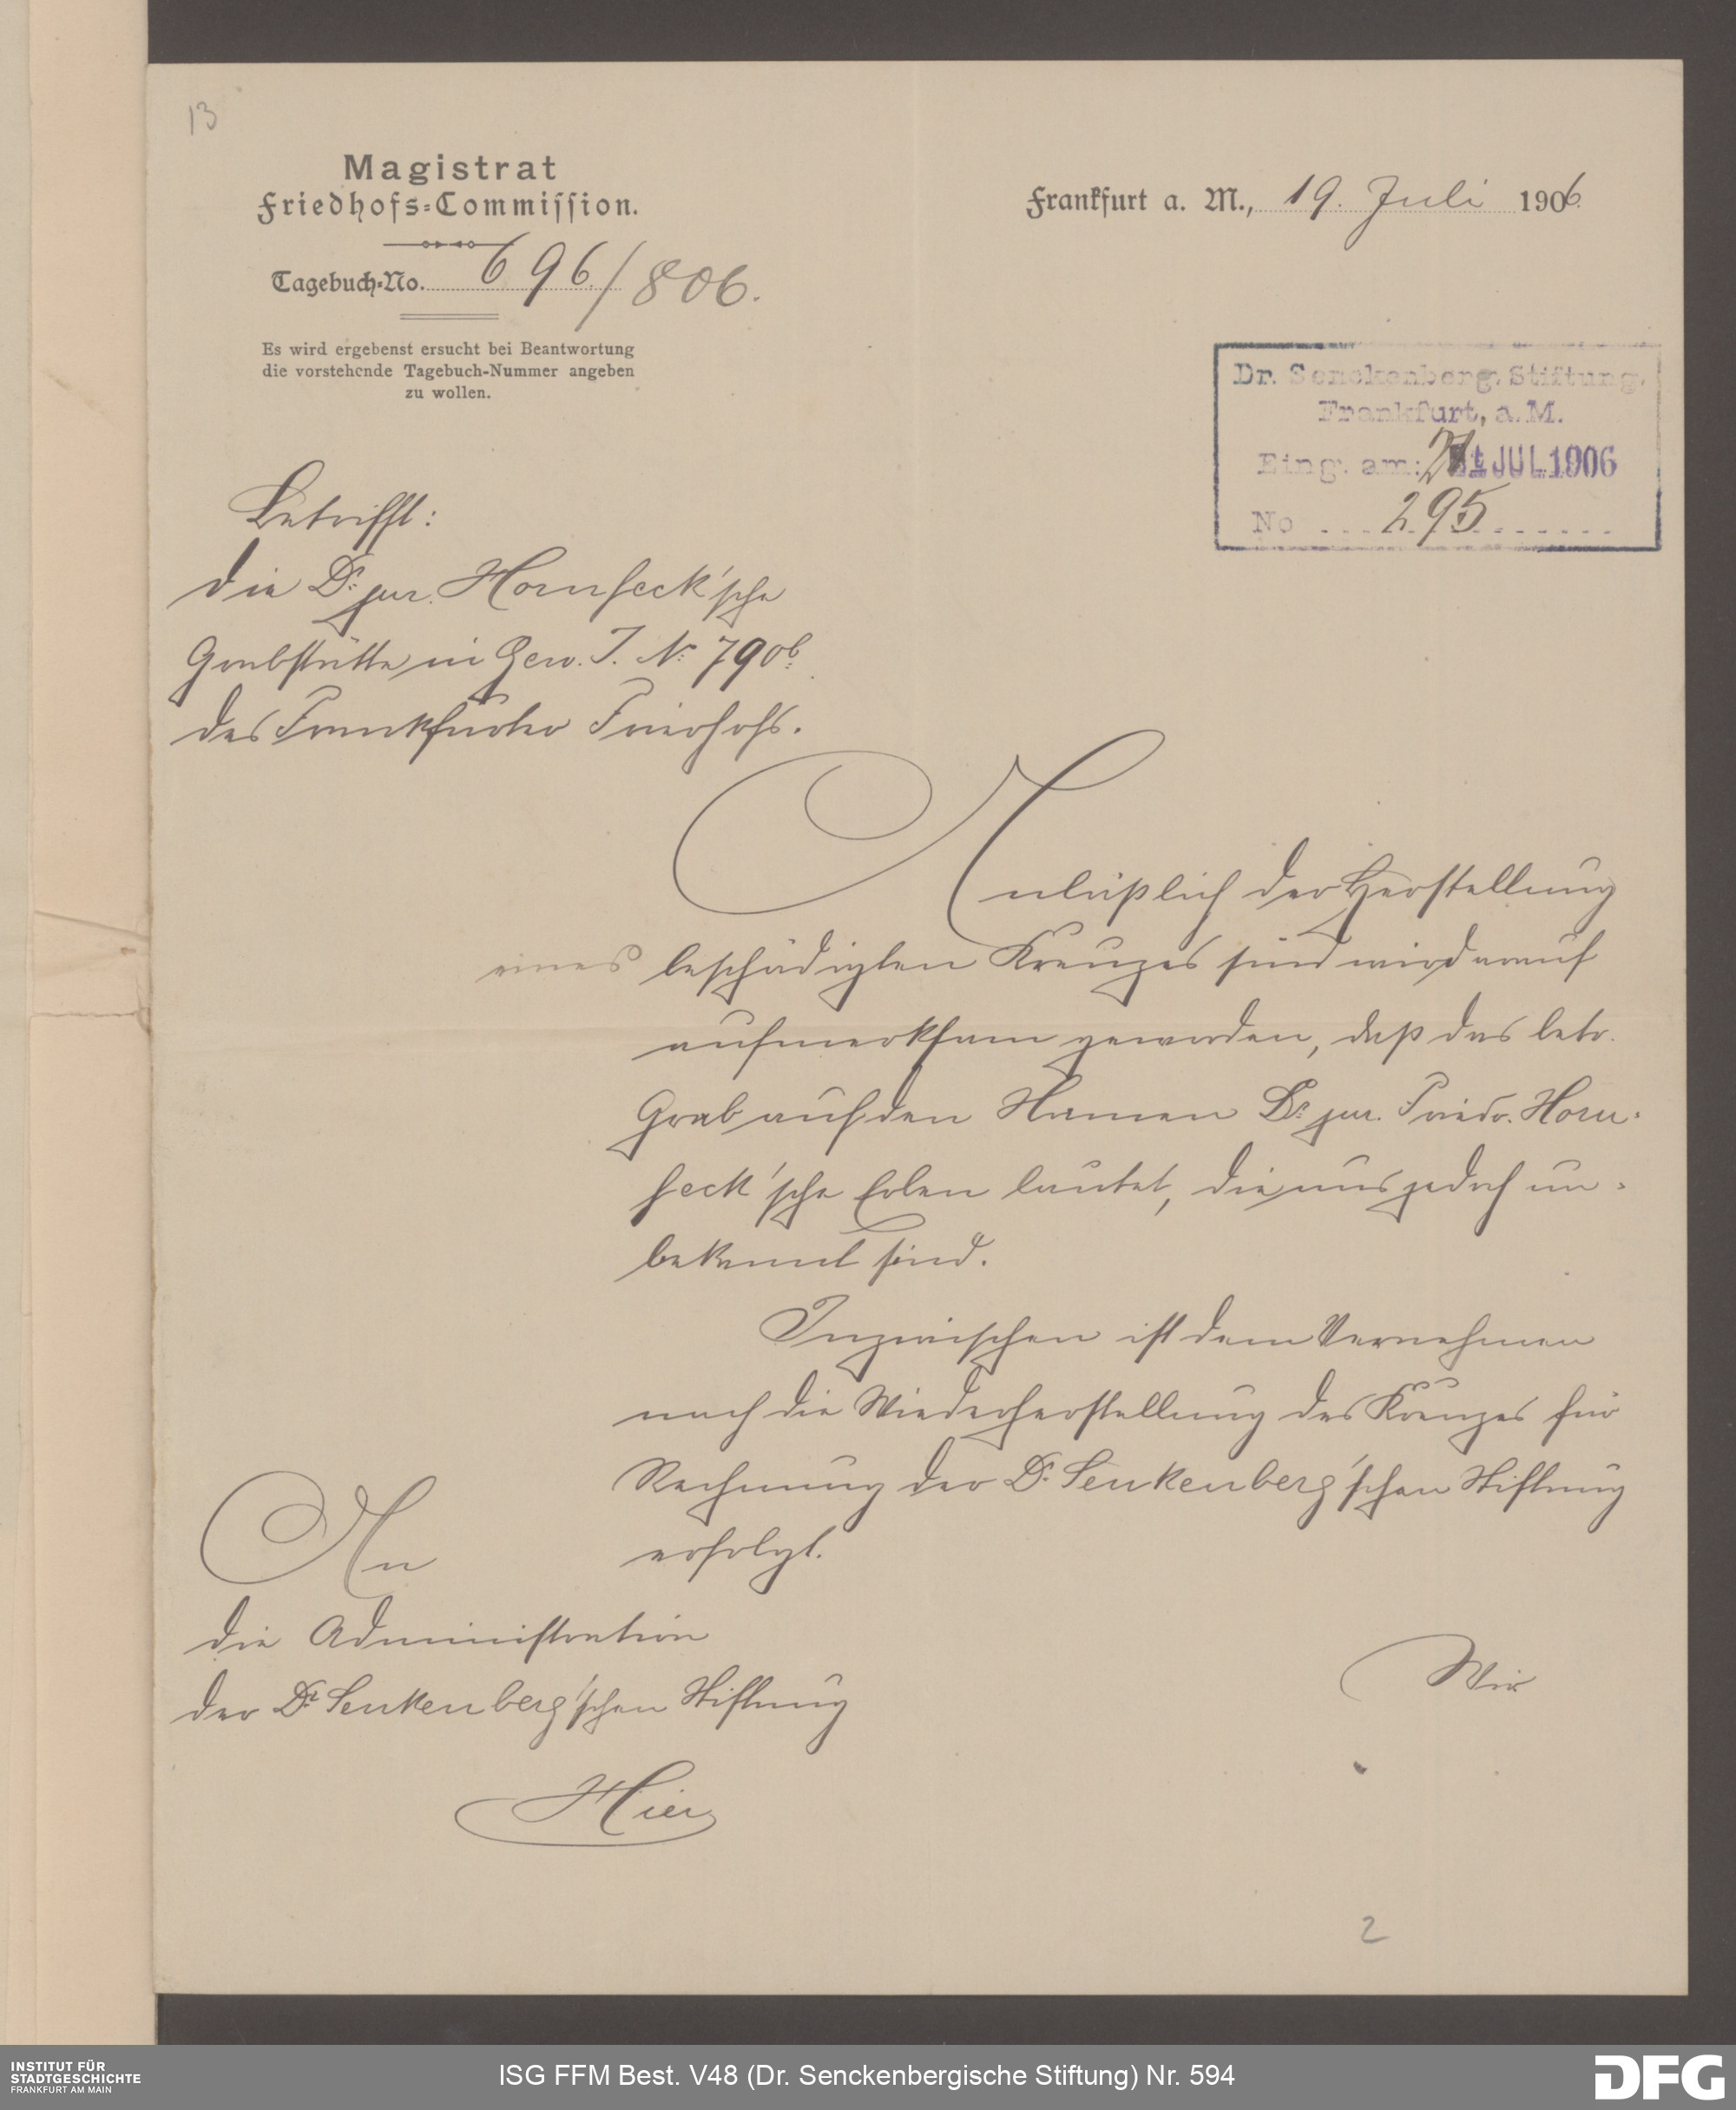 13
Magistrat
Friedhofs-Commission.
Tagebuch-No. 696./806.
Es wird ergebenst ersucht bei Beantwortung
die vorstehende Tagebuch-Nummer angeben
zu wollen.
Frankfurt a. M., 19. Juli 1906.
Dr. Senckenberg. Stiftung,
Frankfurt, a. M.
Eing. am: 21 JUL 1906
No 295
Betrifft:
die Dr. jur. Hornfeck'sche
Grabstätte in Gew. J. No 790b
des Frankfurter Friedhofs.
Anläßlich der Herstellung
eines beschädigten Kreuzes sind wir darauf
aufmerksam geworden, daß das betr.
Grab auf den Namen Dr. jur. Friedr. Horn-
feck'sche Erben lautet, die uns jedoch un-
bekannt sind.
Inzwischen ist dem Vernehmen
nach die Wiederherstellung des Kreuzes für
Rechnung der Dr. Senkenberg'schen Stiftung
erfolgt.
An
die Administration
der Dr. Senkenberg'schen Stiftung
Hier
Wir
2
INSTITUT FÜR
STADTGESCHICHTE
FRANKFURT AM MAIN
ISG FFM Best. V48 (Dr. Senckenbergische Stiftung) Nr. 594
DFG